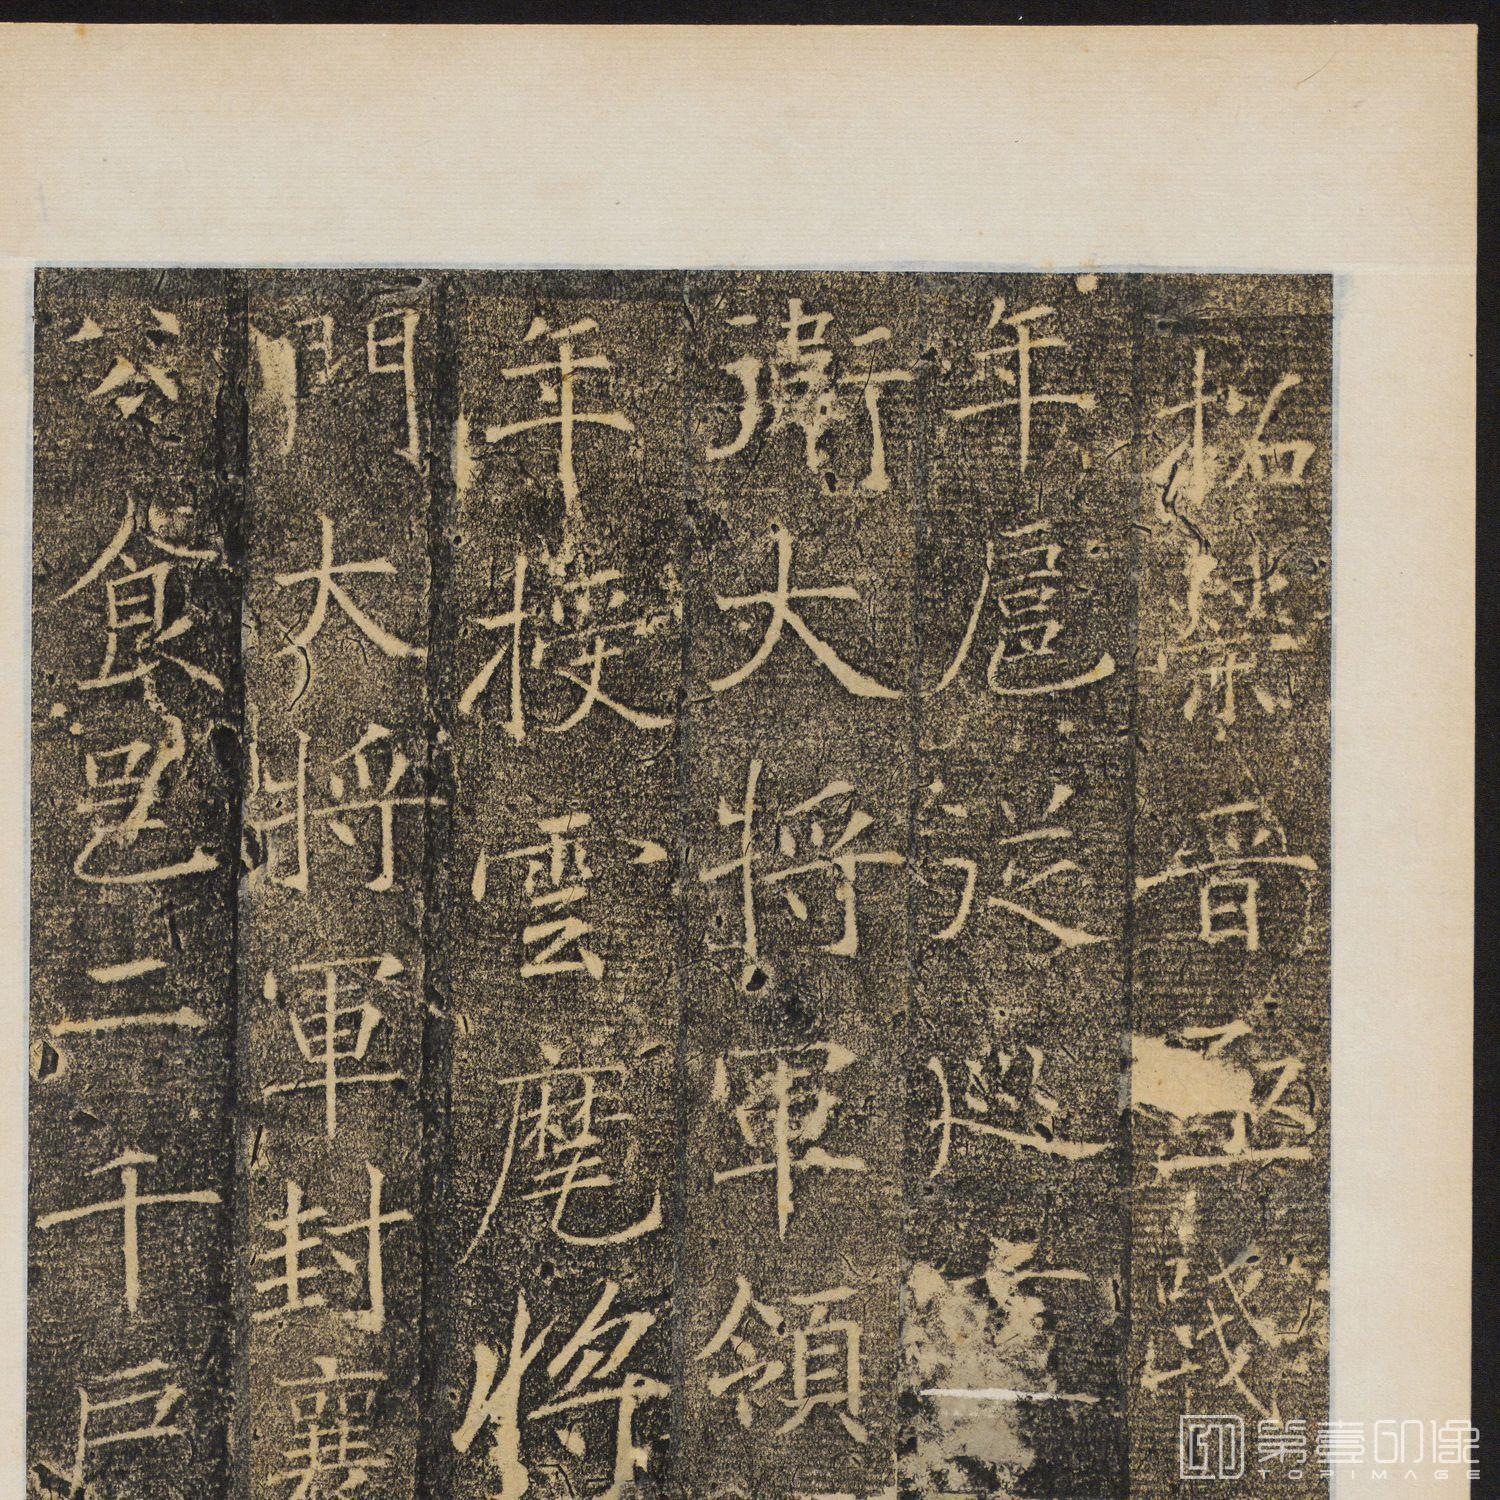 拓晉
年扈從巡
衛大將軍領
年授雲麾將
門大將軍封襄
公食邑二千戶
第壹印像
TOPIMAGE